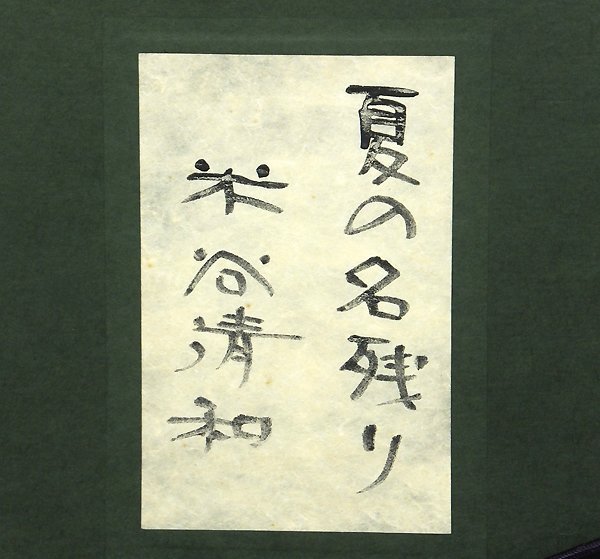 夏の名残り
米谷清和